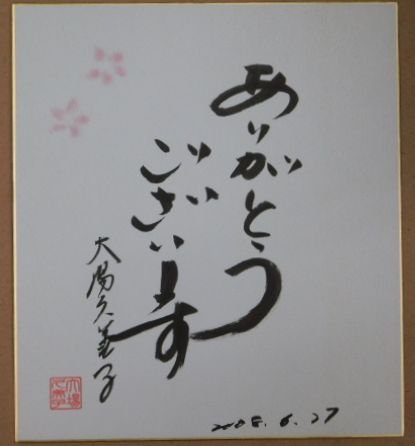 ありがとう
ございます
大場久美子
2008.6.27